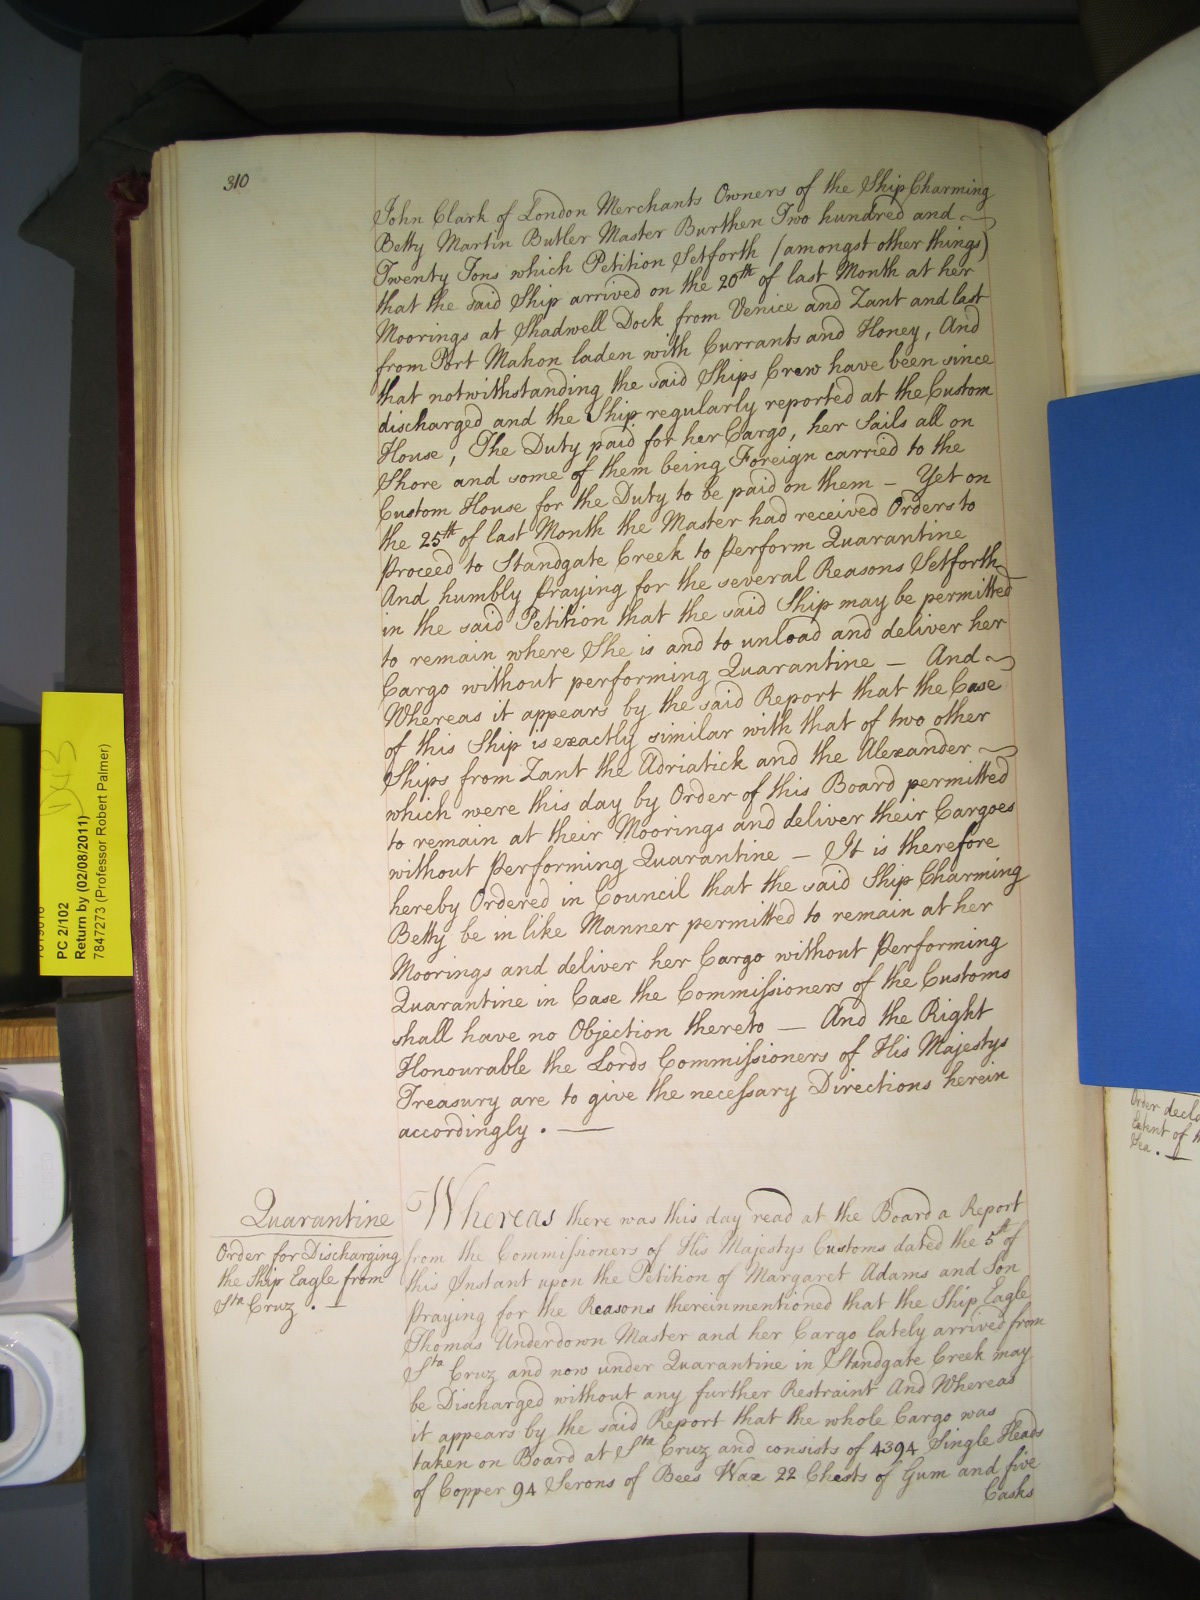 310
John Clark of London Merchants Owners of the Ship Charming
Betty Martin Butler Master Burthen Two hundred and
Twenty Tons which Petition Setforth (amongst other things)
that the said Ship arrived on the 20th of last Month at her
Moorings at Shadwell Dock from Venice and Zant and last
from Port Mahon laden with Currants and Honey, And
that notwithstanding the said Ships Crew have been since
discharged and the Ship regularly reported at the Custom
House, The Duty paid for her Cargo, her Sails all on
Shore and some of them being Foreign carried to the
Custom House for the Duty to be paid on them — Yet on
the 25th of last Month the Master had received Orders to
Proceed to Standgate Creek to Perform Quarantine
And humbly Praying for the several Reasons Setforth
in the said Petition that the said Ship may be permitted
to remain where She is and to unload and deliver her
Cargo without performing Quarantine — And
Whereas it appears by the said Report that the Case
of this Ship is exactly similar with that of two other
Ships from Zant the Adriatick and the Alexander
which were this day by Order of this Board permitted
to remain at their Moorings and deliver their Cargoes
without Performing Quarantine — It is therefore
hereby Ordered in Council that the said Ship Charming
Betty be in like Manner permitted to remain at her
Moorings and deliver her Cargo without Performing
Quarantine in Case the Commissioners of the Customs
shall have no Objection thereto — And the Right
Honourable the Lords Commissioners of His Majestys
Treasury are to give the necessary Directions herein
accordingly. —
Quarantine
Order for Discharging
the Ship Eagle from
Sta Cruz. —
Whereas there was this day read at the Board a Report
from the Commissioners of His Majestys Customs dated the 5th of
this Instant upon the Petition of Margaret Adams and Son
Praying for the Reasons thereinmentioned that the Ship Eagle
Thomas Underdown Master and her Cargo lately arrived from
Sta Cruz and now under Quarantine in Standgate Creek may
be Discharged without any further Restraint And Whereas
it appears by the said Report that the whole Cargo was
taken on Board at Sta Cruz and consists of 4394 Single Heads
of Copper 94 Serons of Bees Wax 22 Chests of Gum and five
Casks
PC 2/102
Return by (02/08/2011)
7847273 (Professor Robert Palmer)
Order
of